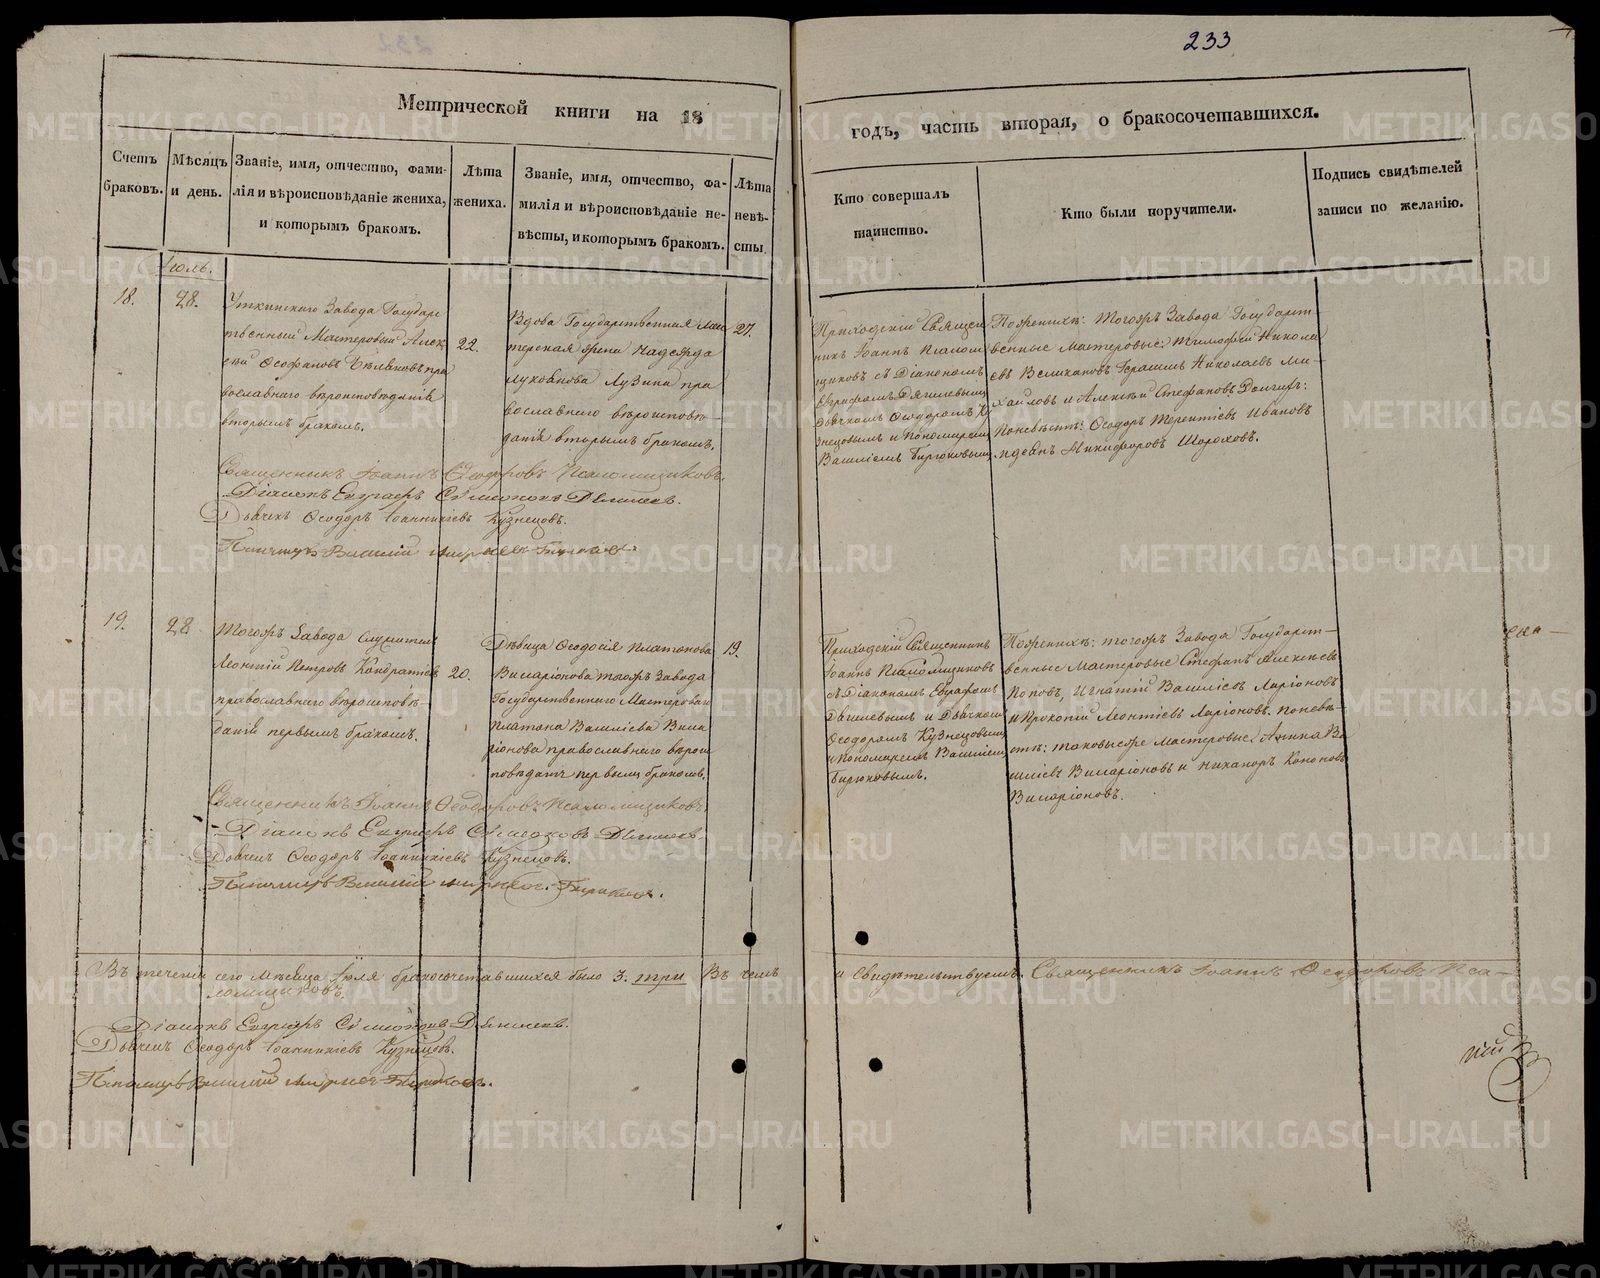 233
Метрической книги на 18
годъ, часть вторая, о бракосочетавшихся.
Счетъ браковъ.
Мѣсяцъ и день.
Званіе, имя, отчество, фами-
лія и вѣроисповѣданіе жениха,
и которымъ бракомъ.
Лѣта
жениха.
Званіе, имя, отчество, фа-
милія и вѣроисповѣданіе не-
вѣсты, и которымъ бракомъ.
Лѣта
невѣ-
сты
Кто совершалъ
таинство.
Кто были поручители.
Подпись свидѣтелей
записи по желанію.
Іюль.
18.
28.
Уткинскаго Завода Государс
твенный Мастеровый Алек
сѣй Ѳеофановъ Бѣляковъ пра
вославнаго вѣроисповѣданія
вторымъ бракомъ.
22.
Вдова Государственная мас
терская жена Надежда
Лузина пра
вославнаго вѣроисповѣ-
данія вторымъ бракомъ.
27.
Приходскій Священ
никъ Іоаннъ Псалом
щиковъ съ Діакономъ
Евграфомъ Дягилевымъ
Дьячкомъ Ѳеодоромъ Ку
знецовымъ и Пономаремъ
Василіемъ Бирюковымъ
По женихѣ: тогожъ Завода Государст-
венные Мастеровые: Тимофей Никола
евъ Великановъ Герасимъ Николаевъ Ми-
хайловъ и Алексѣй Стефановъ
По невѣстѣ: Ѳеодоръ Терентіевъ Ивановъ
Никифоровъ Шороховъ.
Священникъ Іоаннъ Ѳеодоровъ Псаломщиковъ.
Діаконъ Евграфъ Симеоновъ Дягилевъ.
Дьячекъ Ѳеодоръ Іоанникіевъ Кузнецовъ.
Пономарь Василій Бирюковъ.
19.
28
Тогожъ Завода служитель
Леонтій Петровъ Кондратіевъ
православнаго вѣроисповѣ-
данія первымъ бракомъ.
20.
Дѣвица Ѳеодосія Платонова
Виларіонова тогожъ Завода
Государственнаго Мастероваго
Платона Василіева Вила
ріонова православнаго вѣрои
повѣданія первымъ бракомъ.
19.
Приходскій Священникъ
Іоаннъ Псаломщиковъ
съ Діакономъ Евграфомъ
Дягилевымъ и Дьячкомъ
Ѳеодоромъ Кузнецовымъ
и Пономаремъ Василіемъ
Бирюковымъ.
По женихѣ: тогожъ Завода Государст-
венные Мастеровые Стефанъ Алексѣевъ
Поповъ, Игнатій Василіевъ Ларіоновъ
и Прокопій Леонтіевъ Ларіоновъ. по невѣ-
стѣ: таковыеже Мастеровые, Ва
силіевъ Виларіоновъ и Никаноръ Кононовъ
Виларіоновъ.
Священникъ Іоаннъ Ѳеодоровъ Псаломщиковъ.
Діаконъ Евграфъ Симеоновъ Дягилевъ.
Дьячекъ Ѳеодоръ Іоанникіевъ Кузнецовъ.
Пономарь Василій Бирюковъ.
Въ теченіи сего Мѣсяца Іюля бракосочетавшихся было 3. три Въ чемъ
и свидѣтельствуемъ. Священникъ Іоаннъ Ѳеодоровъ Пса-
ломщиковъ.
Діаконъ Евграфъ Симеоновъ Дягилевъ.
Дьячекъ Ѳеодоръ Іоанникіевъ Кузнецовъ.
Пономарь Василій Бирюковъ.
METRIKI.GASO-URAL.RU